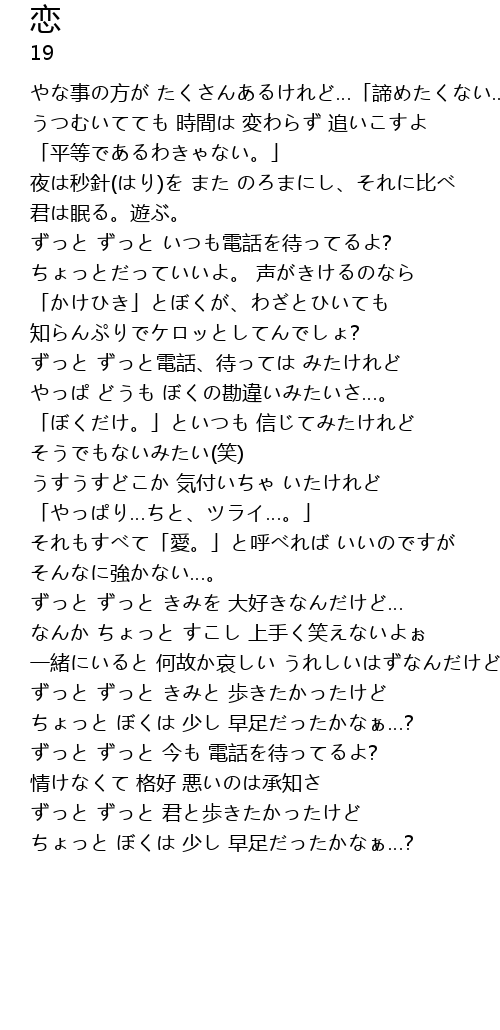 恋
19
やな事の方が たくさんあるけれど...「諦めたくない..
うつむいてても 時間は 変わらず 追いこすよ
「平等であるわきゃない。」
夜は秒針(はり)を また のろまにし、それに比べ
君は眠る。遊ぶ。
ずっと ずっと いつも電話を待ってるよ?
ちょっとだっていいよ。 声がきけるのなら
「かけひき」とぼくが、わざとひいても
知らんぷりでケロッとしてんでしょ?
ずっと ずっと電話、待っては みたけれど
やっぱ どうも ぼくの勘違いみたいさ...。
「ぼくだけ。」といつも 信じてみたけれど
そうでもないみたい(笑)
うすうすどこか 気付いちゃ いたけれど
「やっぱり...ちと、ツライ...。」
それもすべて「愛。」と呼べれば いいのですが
そんなに強かない...。
ずっと ずっと きみを 大好きなんだけど...
なんか ちょっと すこし 上手く笑えないよぉ
一緒にいると 何故か哀しい うれしいはずなんだけど
ずっと ずっと きみと 歩きたかったけど
ちょっと ぼくは 少し 早足だったかなぁ...?
ずっと ずっと 今も 電話を待ってるよ?
情けなくて 格好 悪いのは承知さ
ずっと ずっと 君と歩きたかったけど
ちょっと ぼくは 少し 早足だったかなぁ...?